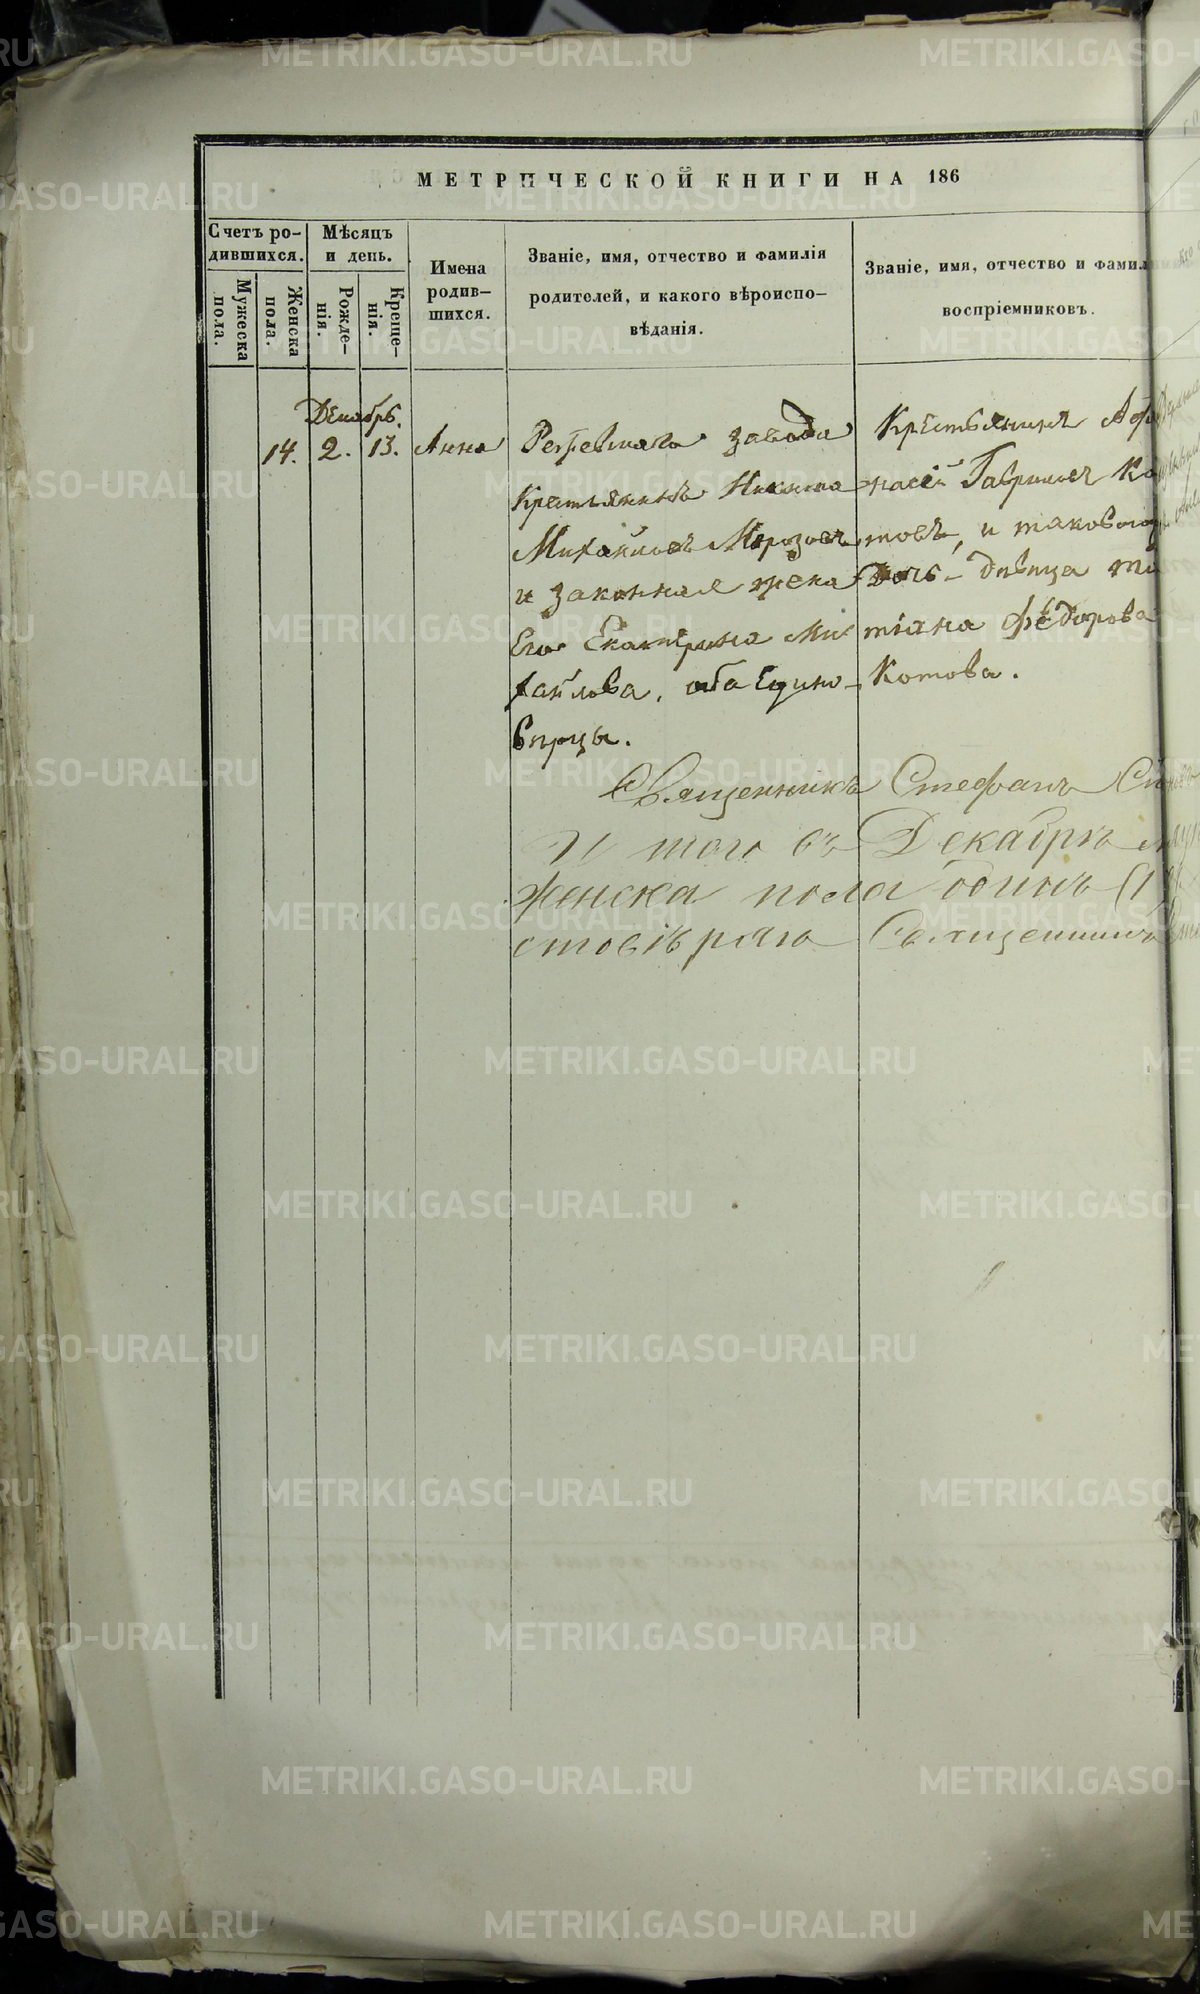 МЕТРИЧЕСКОЙ КНИГИ НА 186
Счетъ ро-
дившихся.
Мужеска
пола.
Женска
пола.
Мѣсяцъ
и день.
Рожде-
нія.
Креще-
нія.
Имена
родив-
шихся.
Званіе, имя, отчество и фамилія
родителей, и какого вѣроиспо-
вѣданія.
Званіе, имя, отчество и фамил
воспріемниковъ.
Декабрь.
14. 2. 13. Анна
завода
Крестьянинъ Никита
Михайловъ Морозовъ
и законная жена
Его Екатерина Ми
хайлова, оба Едино-
вѣрцы.
Крестьянинъ Афа
насій Гавриловъ Ко
товъ, и таковаго
Дочь - дѣвица
тіана Ѳедорова
Котова.
Священникъ Стефанъ
И того въ Декабрѣ
женска пола одинъ (1)
Священникъ
METRIKI.GASO-URAL.RU